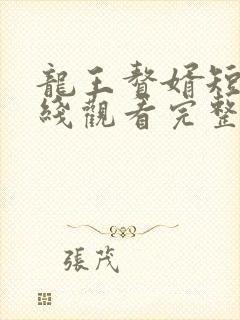 龍王贅婿短
綫觀看完整
張茂